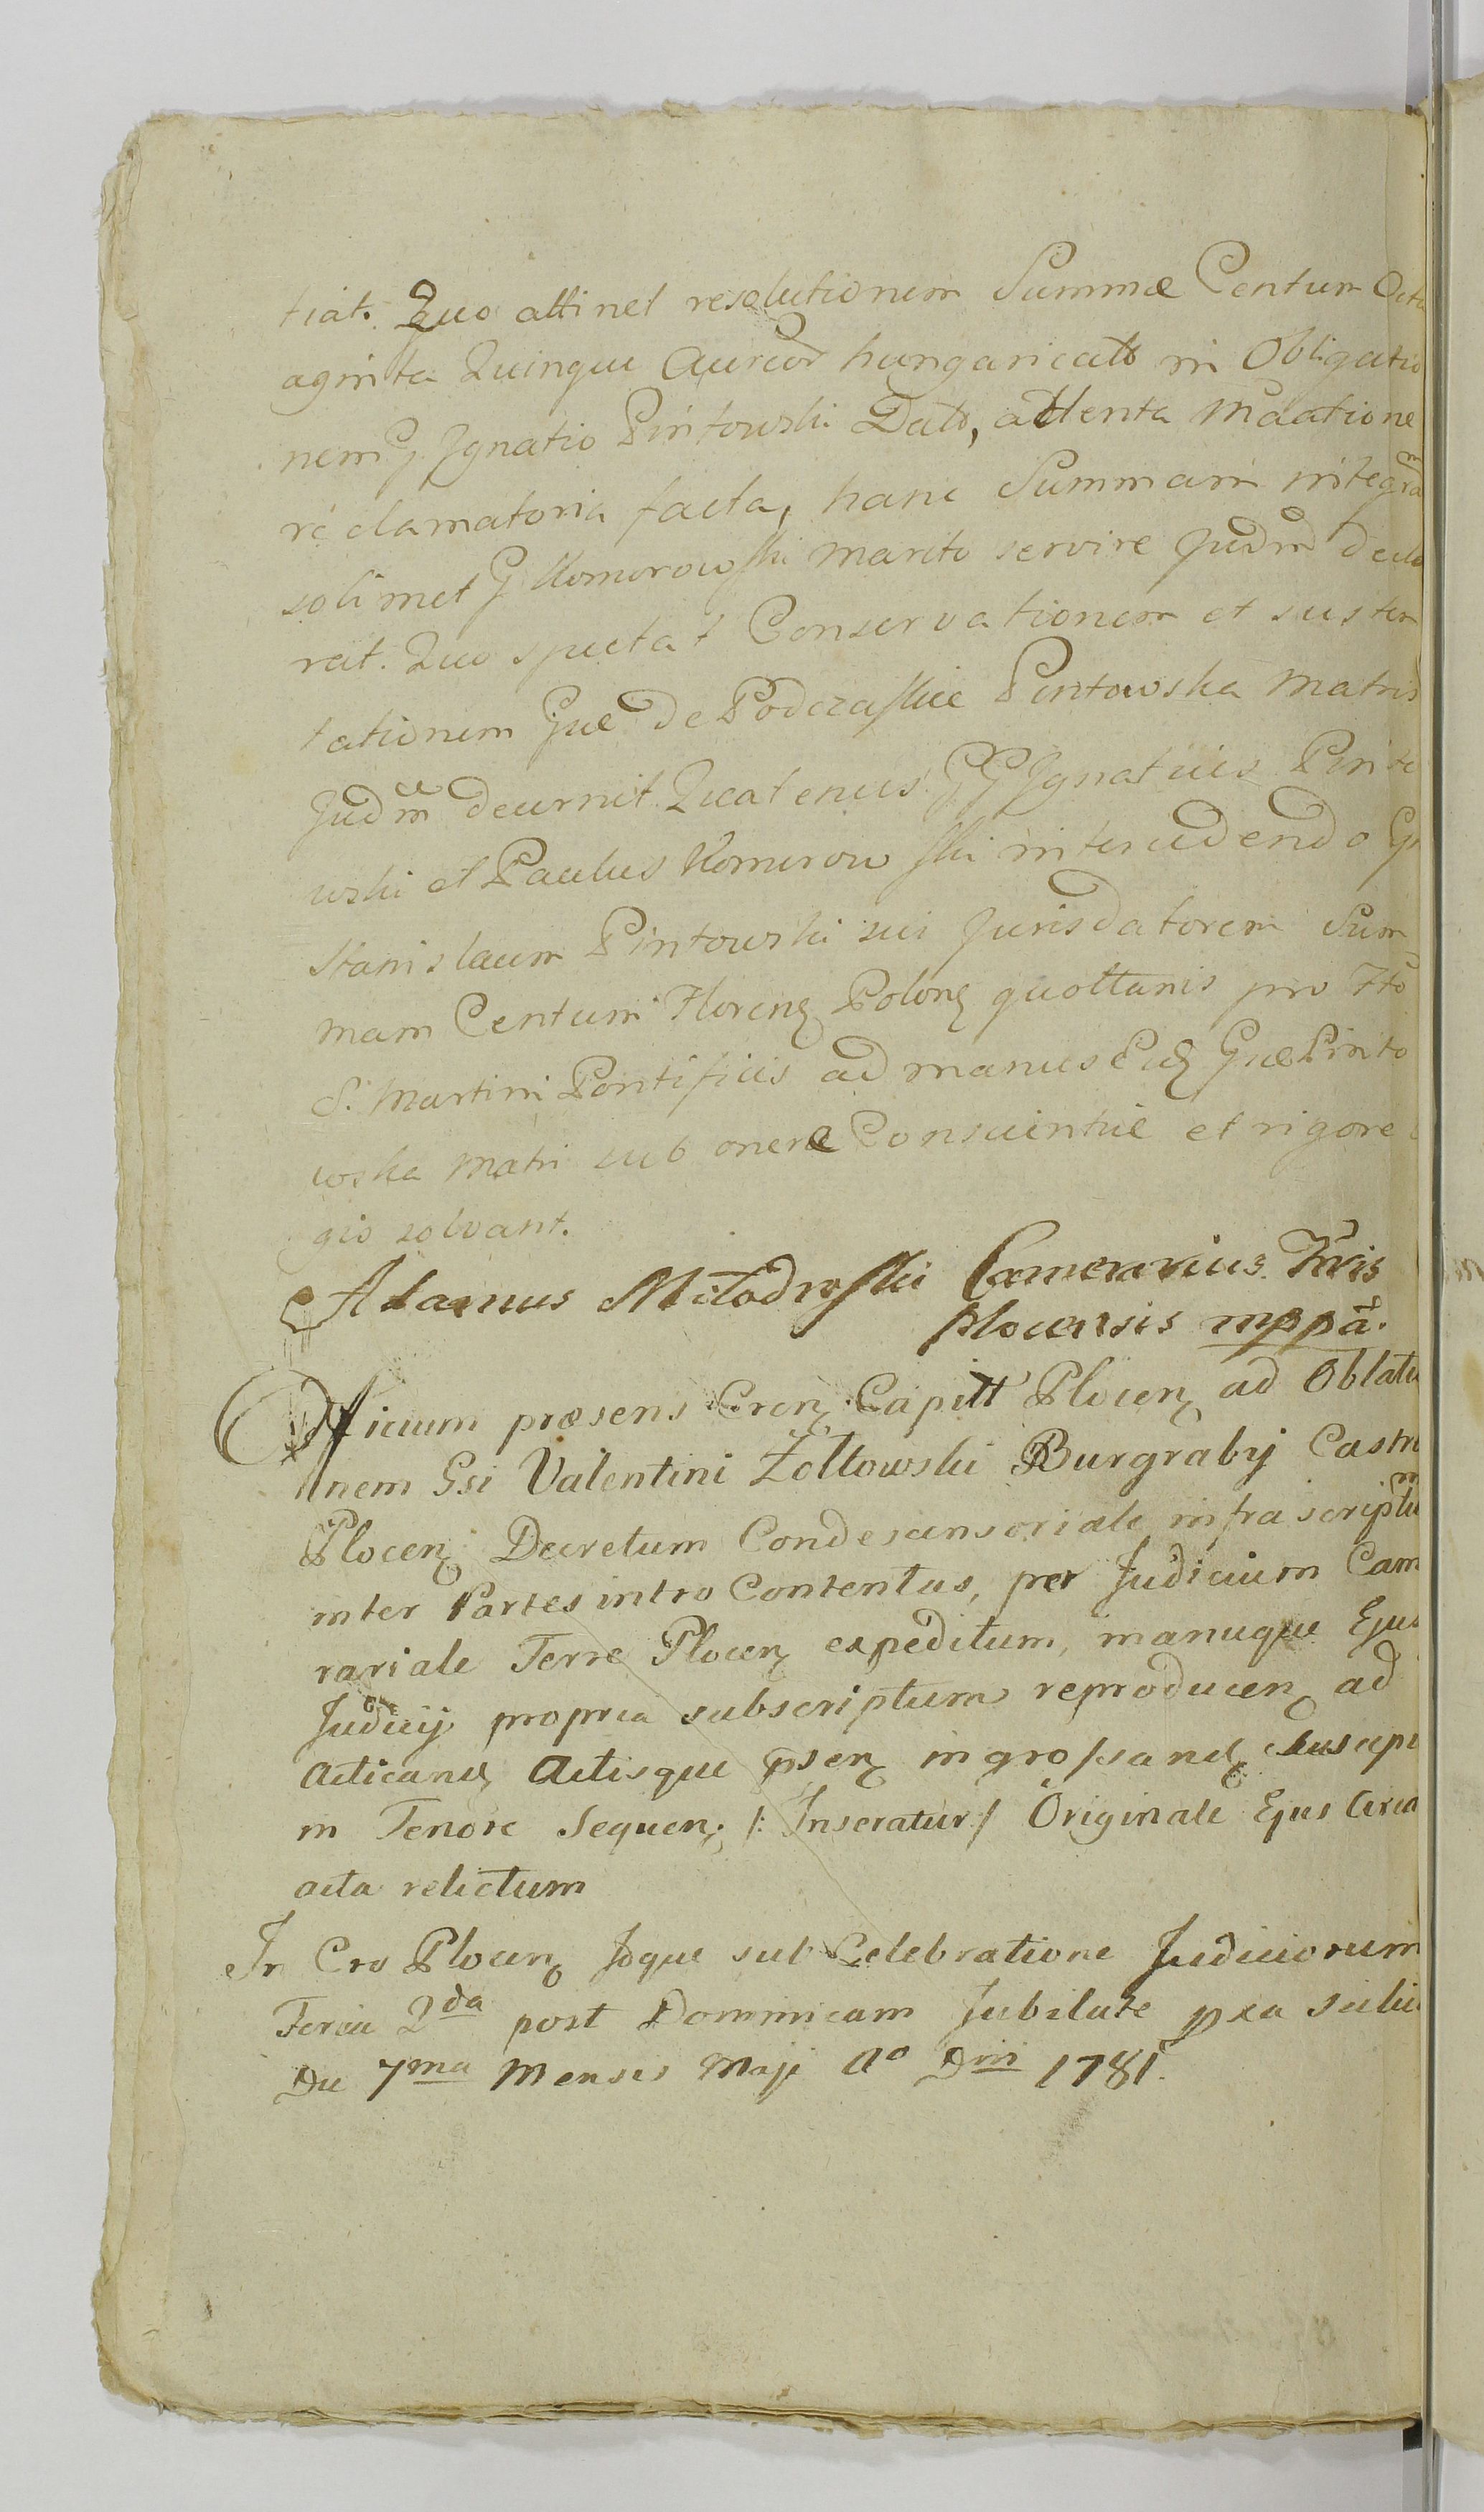 tiat. Quo attinet resolutionem Summæ Centum Octu
aginta Quinque Aureor hungaricals in Obligatio
nem G. Ignatio Pintowski Dato, attenta Maatione
reclamatoria facta, hanc Summam integram
solimet G Komorowski Marito servire Judm decla
rat. Quo spectat Conservationem et susten
tationem Gnæ de Podczaskie Pintowska Matris
Judm decernit Quatenus GG Ignatius Pinto
wski et Paulus Komorowski intercedendo Gn
Stanislaum Pintowski sui Jurisdatorem Sum
mam Centum Floren Polon quottanis pro Fto
S. Martini Pontificis ad manus Ejus Gnæ Pinto
wska Matri sub onere Conscientiæ et rigore
gis solvant.
Adamus Miłodroski Camerarius Tris
plocensis mppa.
Officium præsens Cren Capitt Plocen ad Oblatio
nem Gsi Valentini Żółtowski Burgrabij Castri
Plocen Decretum Condescensoriale infra scriptum
inter Partes intro Contentas, per Judicium Came
rariale Terræ Plocen expeditum, manuque Ejus
Judicij propria subscriptum reproducen ad
Acticand Actisque psen ingrossand Suscepi
in Tenore Sequen: /: Inseratur:/ Originale Ejus Circa
acta relictum
In Cro Plocen Idque sub Celebratione Judiciorum
Feria 2da post Dominicam Jubilate pxa scilic
Die 7ma Mensis Maji Ao Dni 1781.